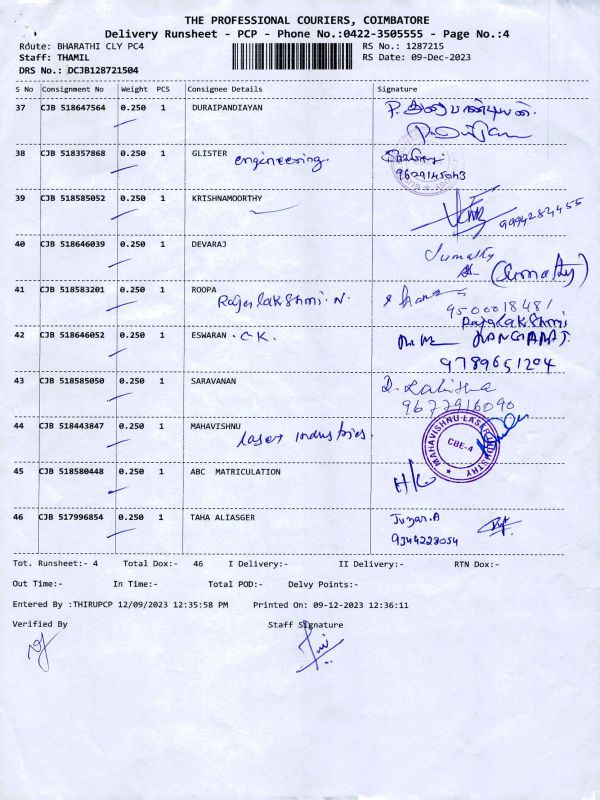 THE PROFESSIONAL COURIERS, COIMBATORE
Delivery Runsheet - PCP - Phone No.:0422-3505555 - Page No.:4
Route: BHARATHI CLY PC4 RS No.: 1287215
Staff: THAMIL RS Date: 09-Dec-2023
DRS No.: DCJB128721504
S No Consignment No Weight PCS Consignee Details Signature
37 CJB 518647564 0.250 1 DURAIPANDIAYAN
38 CJB 518357868 0.250 1 GLISTER engineering.
9629145043
39 CJB 518585052 0.250 1 KRISHNAMOORTHY 9994284455
40 CJB 518646039 0.250 1 DEVARAJ Sumathy
(Sumathy)
41 CJB 518583201 0.250 1 ROOPA
Rajalakshmi. N. 9500018481
Rajalakshmi
42 CJB 518646052 0.250 1 ESWARAN . C.K. KANGARAJ.
9789651204
43 CJB 518585050 0.250 1 SARAVANAN D. Lalitha
9677916090
44 CJB 518443847 0.250 1 MAHAVISHNU
Laser industries. MAHAVISHNU LASER INDUSTRY CBE-4
45 CJB 518580448 0.250 1 ABC MATRICULATION
46 CJB 517996854 0.250 1 TAHA ALIASGER Juzar.A
9344228054
Tot. Runsheet:- 4 Total Dox:- 46 I Delivery:- II Delivery:- RTN Dox:-
Out Time:- In Time:- Total POD:- Delvy Points:-
Entered By :THIRUPCP 12/09/2023 12:35:58 PM Printed On: 09-12-2023 12:36:11
Verified By Staff Signature